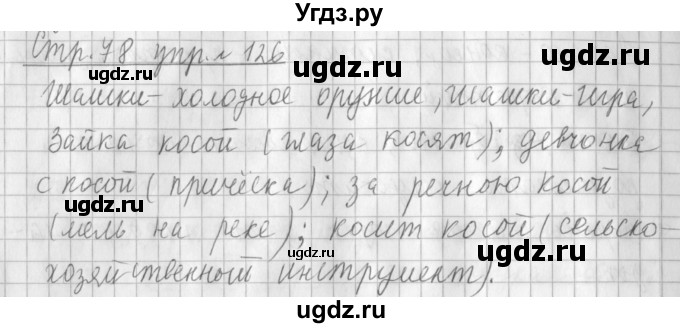 Угдз.ру
Стр. 78 упр. № 126
ugdz.ru ugdz.ru
Шашки - холодное оружие, шашки - игра,
ugdz.ru ugdz.ru
Зайка косой (глаза косят); девчонка
ugdz.ru
с косой (причёска); за речною косой
ugdz.ru ugdz.ru
(мель на реке); косит косой (сельско-
ugdz.ru
хозяйственный инструмент).
ugdz.ru
ugdz.ru